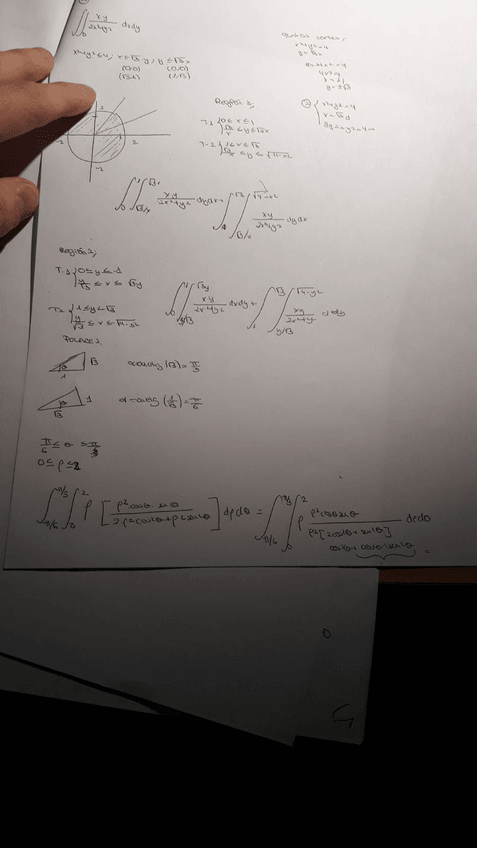 ∬_D xy/(2x²+y²) dxdy
x²+y²≤4, x≤√3 y, y≤√3x
(0,0) (0,0)
(√3,1) (1,√3)
x²+y²=4
y=√3x
4x²=4
y=±√3
② { x²+y²=4
x=√3y
2
-2 2
-2
Region 1,
T-1 { 0≤x≤1
≤y≤√3x
T-2 { 1≤x≤√3
≤y≤√(4-x²)
∫₀¹ ∫_{√3/x}^{√3x} xy/(2x²+y²) dydx + ∫₁^{√3} ∫_{√3/x}^{√(4-x²)} xy/(2x²+y²) dydx
Region 2,
T-1 { 0≤y≤1
y/√3 ≤x≤ √3y
T-2 { 1≤y≤√3
y/√3 ≤x≤ √(4-x²)
∫₀¹ ∫_{y/√3}^{√3y} xy/(2x²+y²) dxdy + ∫₁^{√3} ∫_{y/√3}^{√(4-y²)} xy/(2x²+y²) dxdy
Polares,
θ √3 1 α=arctg(√3)=π/3
θ 1 √3 α=arctg(1/√3)=π/6
π/6 ≤ θ ≤ π/3
0≤ρ≤2
∫_{π/6}^{π/3} ∫₀² ρ [ρ²cosθ sinθ / (2ρ²cos²θ+ρ²sin²θ)] dρdθ = ∫_{π/6}^{π/3} ∫₀² ρ ρ²cosθ sinθ / (ρ²[2cos²θ+sin²θ]) dρdθ
cos²θ+cos²θ+sin²θ